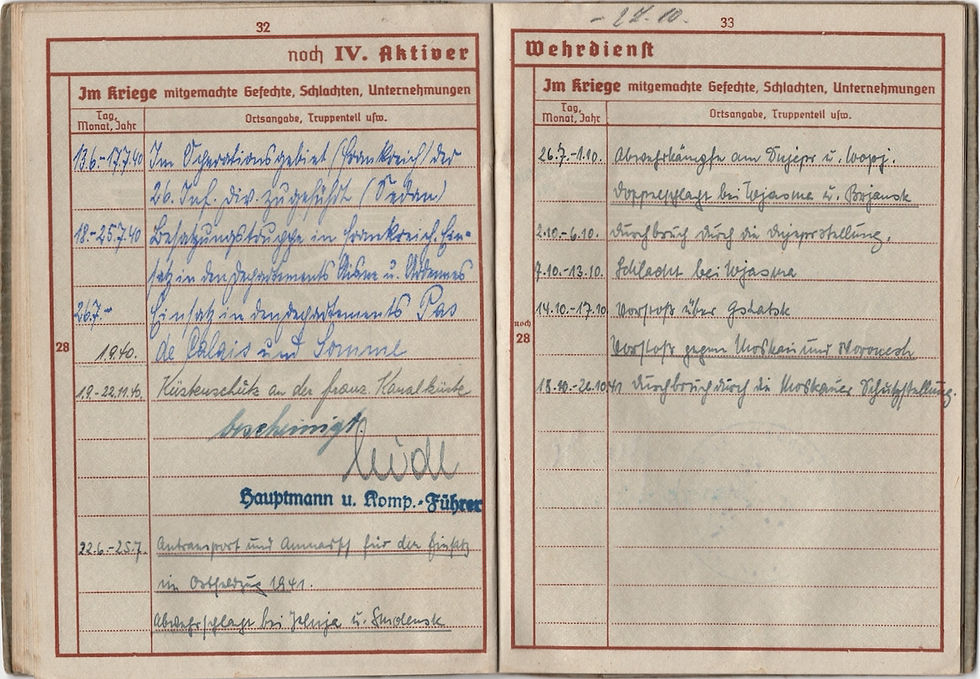 32
noch IV. Aktiver
Im Kriege mitgemachte Gefechte, Schlachten, Unternehmungen
Tag, Monat, Jahr
Ortsangabe, Truppenteil usw.
13.6.-17.7.40 Im Operationsgebiet (Frankreich) der
26. Inf. Div. zugeführt (Sedan)
18.-25.7.40 Besatzungstruppe in Frankreich. Ein-
satz in den Departements Aisne u. Ardennes
26.7.- Einsatz in den Departements Pas
28
1940. de Calais und Somme
1.9.-22.11.40. Küstenschutz an der franz. Kanalküste
bescheinigt.
Hauptmann u. Komp.-Führer
22.6.-25.7. Antransport und Anmarsch für den Einsatz
im Ostfeldzug 1941.
Abwehrschlacht bei Jelnja u. Smolensk
- 27.10.
33
Wehrdienst
Im Kriege mitgemachte Gefechte, Schlachten, Unternehmungen
Tag, Monat, Jahr
Ortsangabe, Truppenteil usw.
26.7.-1.10. Abwehrkämpfe am Dnjepr u. Wopj.
Doppelschlacht bei Wjasma u. Brjansk
2.10.-6.10. Durchbruch durch die Dnjeprstellung.
7.10.-13.10. Schlacht bei Wjasma
14.10.-17.10. Vorstoß über Gshatsk
noch 28
Vorstoß gegen Moskau und Woronesh
18.10.-26.10.41 Durchbruch durch die Moskauer Schutzstellung.